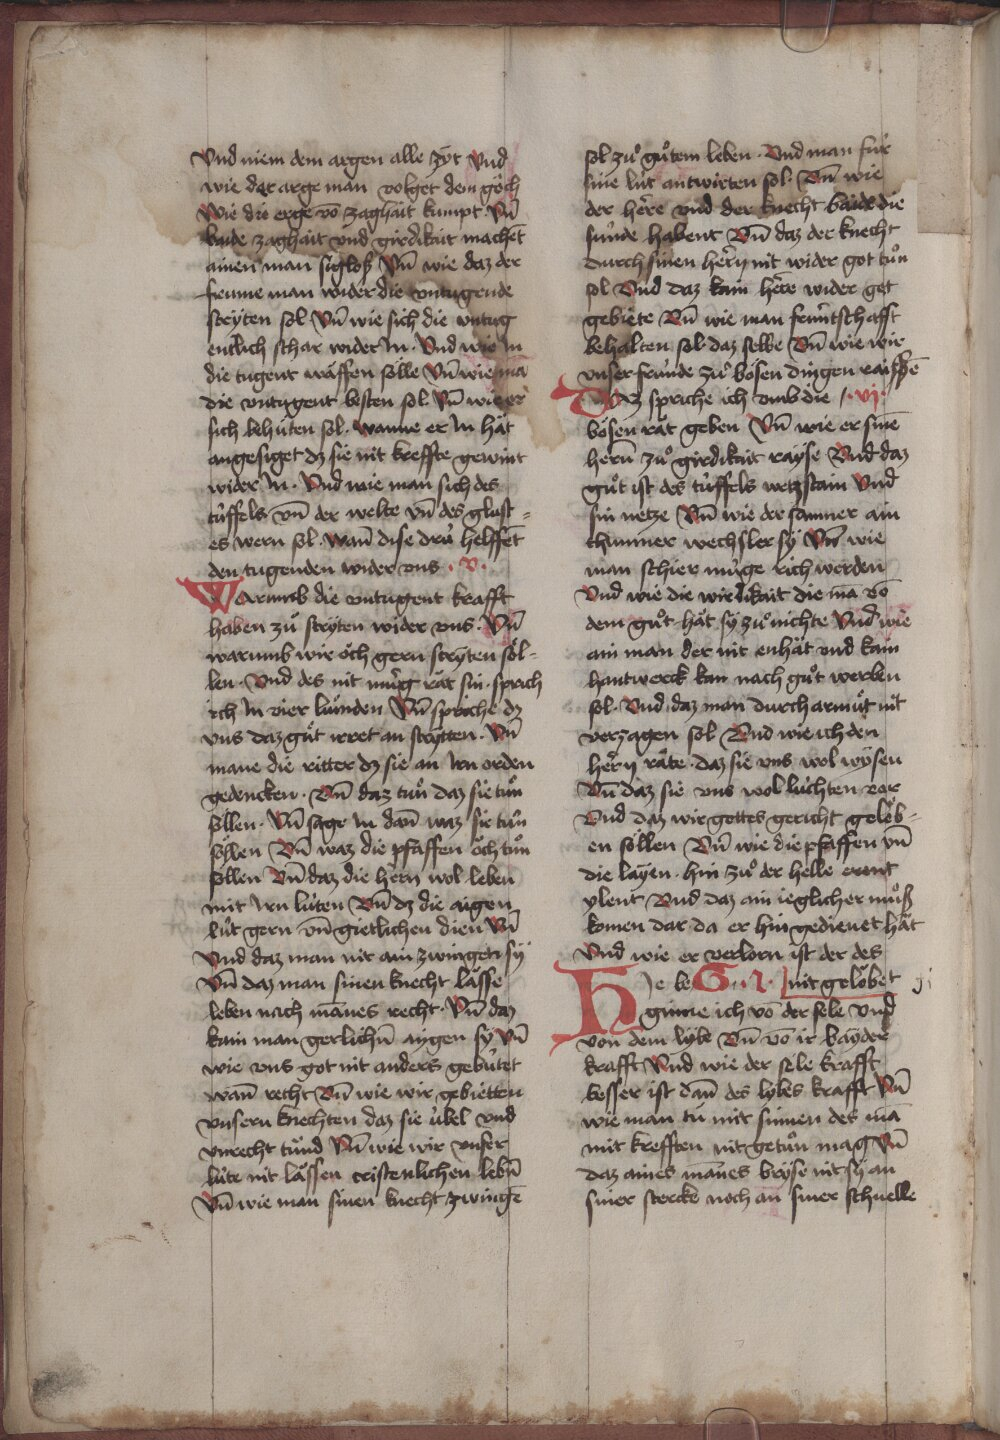 Vnd niem dem argen alle zyt Vnd
wie der arge man volget dem göch
Wie die erge vō zaghait kumpt Vn̄
baide zaghait vnd girdikait machet
ainen man sigloß Vn̄ wie daz der
frume man wider die vntugende
stryten sol Vn̄ wie sich die vntug
entlich schar wider In · Vnd wie In
die tugent wäffen sölle Vn̄ wie mā
die vntugent besten sol Vn̄ wie er
sich behüten sol · wanne er In hät
angesiget dz sie nit kreffte gewint
wider In · Vnd wie man sich des
tüffels vn̄ der welte vn̄ des glust-
es wern sol · Wan̄ dise drü helffet
den tugenden wider vns · v ·
Warumb die vntugent krafft
haben zu̇ stryten wider vns · Vn̄
warumb wir öch gern stryten söl-
len · Vnd des nit müg rät sin · sprich
ich In vier lunden Vn̄ spriche dz
vns daz gu̇t irret an strytten · Vn̄
mane die ritter dz sie an Irn orden
gedencken · Vn̄ daz tu̇n daz sie tu̇n
söllen · Vn̄ sage In dan̄ waz sie tu̇n
söllen Vn̄ waz die pfaffen öch tu̇n
söllen Vn̄ daz die hern wol leben
mit Irn lüten Vn̄ dz die aigen
lüt gern vn̄ gietlichen dien Vn̄
Vnd daz man nit ain zwingen sy
Vn̄ daz man sinen knecht lässe
leben nach mānes recht · Vn̄ daz
kain man gerlichn̄ aygen sy Vn̄
wie vns got nit anders gebütet
wan̄ recht Vn̄ wie wir gebietten
vnsern knechten daz sie übel vnd
vnrecht tu̇nd Vn̄ wie wir vnser
lüte nit lässen cristenlichen lebn̄
Vn̄ wie man sinen knecht zwingē
sol zu̇ gu̇tem leben · Vnd man für
sine lüt antwirten sol · Vn̄ wie
der herre vnd der knecht baide die
sunde habent Vn̄ daz der knecht
durch sinen herrn nit wider got tu̇n
sol Vnd daz kain herre wider got
gebiete Vn̄ wie man fruntschafft
behalten sol · daz selbe Vn̄ wie wir
vnser frunde zu̇ bösen dingen raissē
Daz spriche ich vmb die · vi ·
bösen rät geben Vn̄ wie er sinē
hern̄ zu̇ girdikait rayse Vnd daz
gu̇t ist des tüffels wetzstain Vnd
sin netze Vn̄ wie der samner ain
thummer wechsler sy Vn̄ wie
man schier müge rich werden
Vnd wie die wirdikait die mā vō
dem gu̇t hät sy zu̇ nichte Vnd wie
ain man der nit enhät vnd kain
hantwerck kan nach gu̇t werben
sol · Vnd daz man durch armu̇t nit
verzagen sol Vnd wie ich den
herrn räte · daz sie vns wol wysen
Vn̄ daz sie vns wol lüchten vor
Vnd daz wir gottes gericht gelöb-
en söllen Vn̄ wie die pfaffen vn̄
die layen · hin zu̇ der helle erent
ylent Vnd daz ain ieglicher mu̇ß
komen dar da er hin gedienet hät
Vnd wie er verlorn ist der des
nit gelöbet
Hie be G · 1 ·
ginne ich vō der sele vnd
von dem lybe Vn̄ vō ir bayder
krafft Vnd wie der sele krafft
besser ist dan̄ des lybes krafft Vn̄
wie man tü mit sinnen des mā
mit krefften nit getu̇n mag Vn̄
daz aines mānes bryse nit sy an
siner stercke noch an siner schnelle